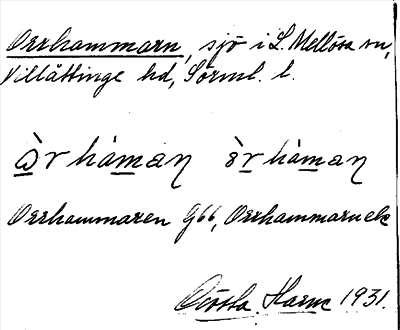 Orrhammarn, sjö i L. Mellösa sn,
Villåttinge hd, Sörml. l.
òrhàman òrhàman
Orrhammaren G66, Orrhammaren ek
Gösta Harne 1931.